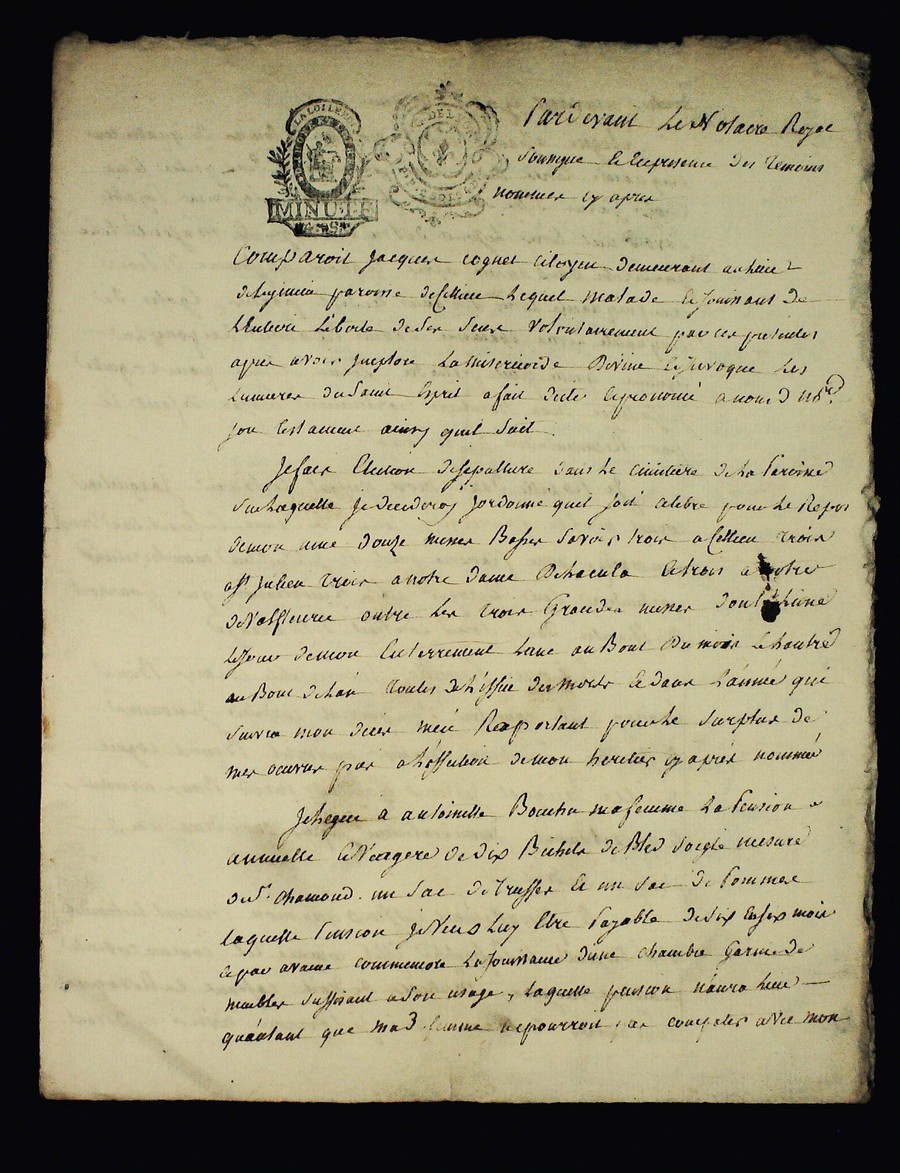 LA LOI LE ROI
MINUTE
4 S
DEL
Pardevant Le Notaire Royal
Soussigné Et En presence Des temoins
nommés cy apres
Comparoit Jacques Cognet Citoyen demeurant au lieu
paroisse de Cellieu Lequel malade Et Jouissant de
Liberté de Ses Sens Volontairement par ces presentes
apres avoir Implore La misericorde Divine Et Invoque Les
Lumieres du Saint Esprit a fait dicté Et prononcé a nous d nre
son testament ainsy quil Suit
Je fais Election de sepulture dans Le cimitiere de La Paroisse
Sur Laquelle Je decederay J'ordonne quil soit celebre pour Le Repos
de mon ame Douze messes Basses Savoir trois a Cellieu trois
a St Julien trois a notre Dame et trois a notre
de Valfleurie outre Les trois Grandes messes dont L'une
Le Jour de mon Enterrement L'une au Bout Du mois Et L'autre
au Bout de L'an toutes de L'office des morts Et dans L'année qui
Suivra mon décès me Raportant pour Le Surplus de
mes oeuvres pies a de mon heritier cy aprés nommé
Je Legue à antoinette ma femme La Pension
annuelle Et Viagere de Dix Bichets de Bled Soigle mesure
de St Chamond un Sac de truffes Et un Sac de Pommes
laquelle Pension Je Veux Luy Etre Payable de Six En Six mois
Et par avance La Jouissance d'une chambre Garnie de
meubles Suffisant a Son usage, Laquelle pension n'aura Lieu
qu'autant que ma d femme ne pourroit pas avec mon